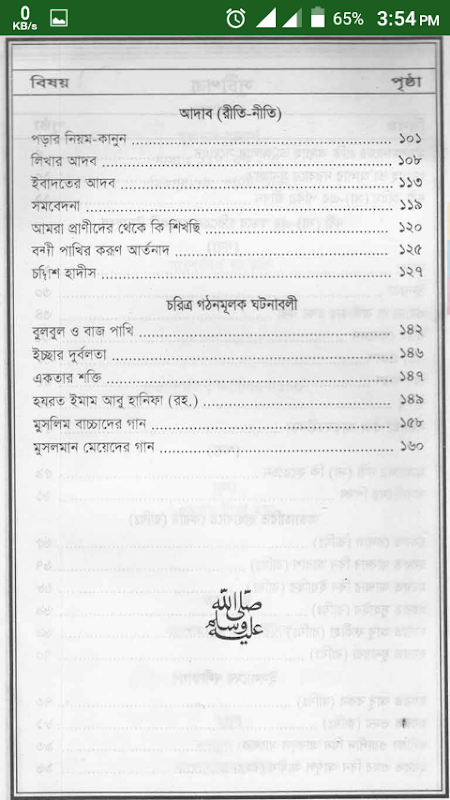 0 KB/s 65% 3:54 PM
বিষয় পৃষ্ঠা
আদাব (রীতি-নীতি)
পড়ার নিয়ম-কানুন ১০১
লিখার আদব ১০৮
ইবাদতের আদব ১১৩
সমবেদনা ১১৯
আমরা প্রাণীদের থেকে কি শিখছি ১২০
বন্দী পাখির করুণ আর্তনাদ ১২৫
চল্লিশ হাদীস ১২৭
চরিত্র গঠনমূলক ঘটনাবলী
বুলবুল ও বাজ পাখি ১৪২
ইচ্ছার দুর্বলতা ১৪৬
একতার শক্তি ১৪৭
হযরত ইমাম আবু হানিফা (রহ.) ১৪৯
মুসলিম বাচ্চাদের গান ১৫৮
মুসলমান মেয়েদের গান ১৬০
صلى الله عليه وسلم